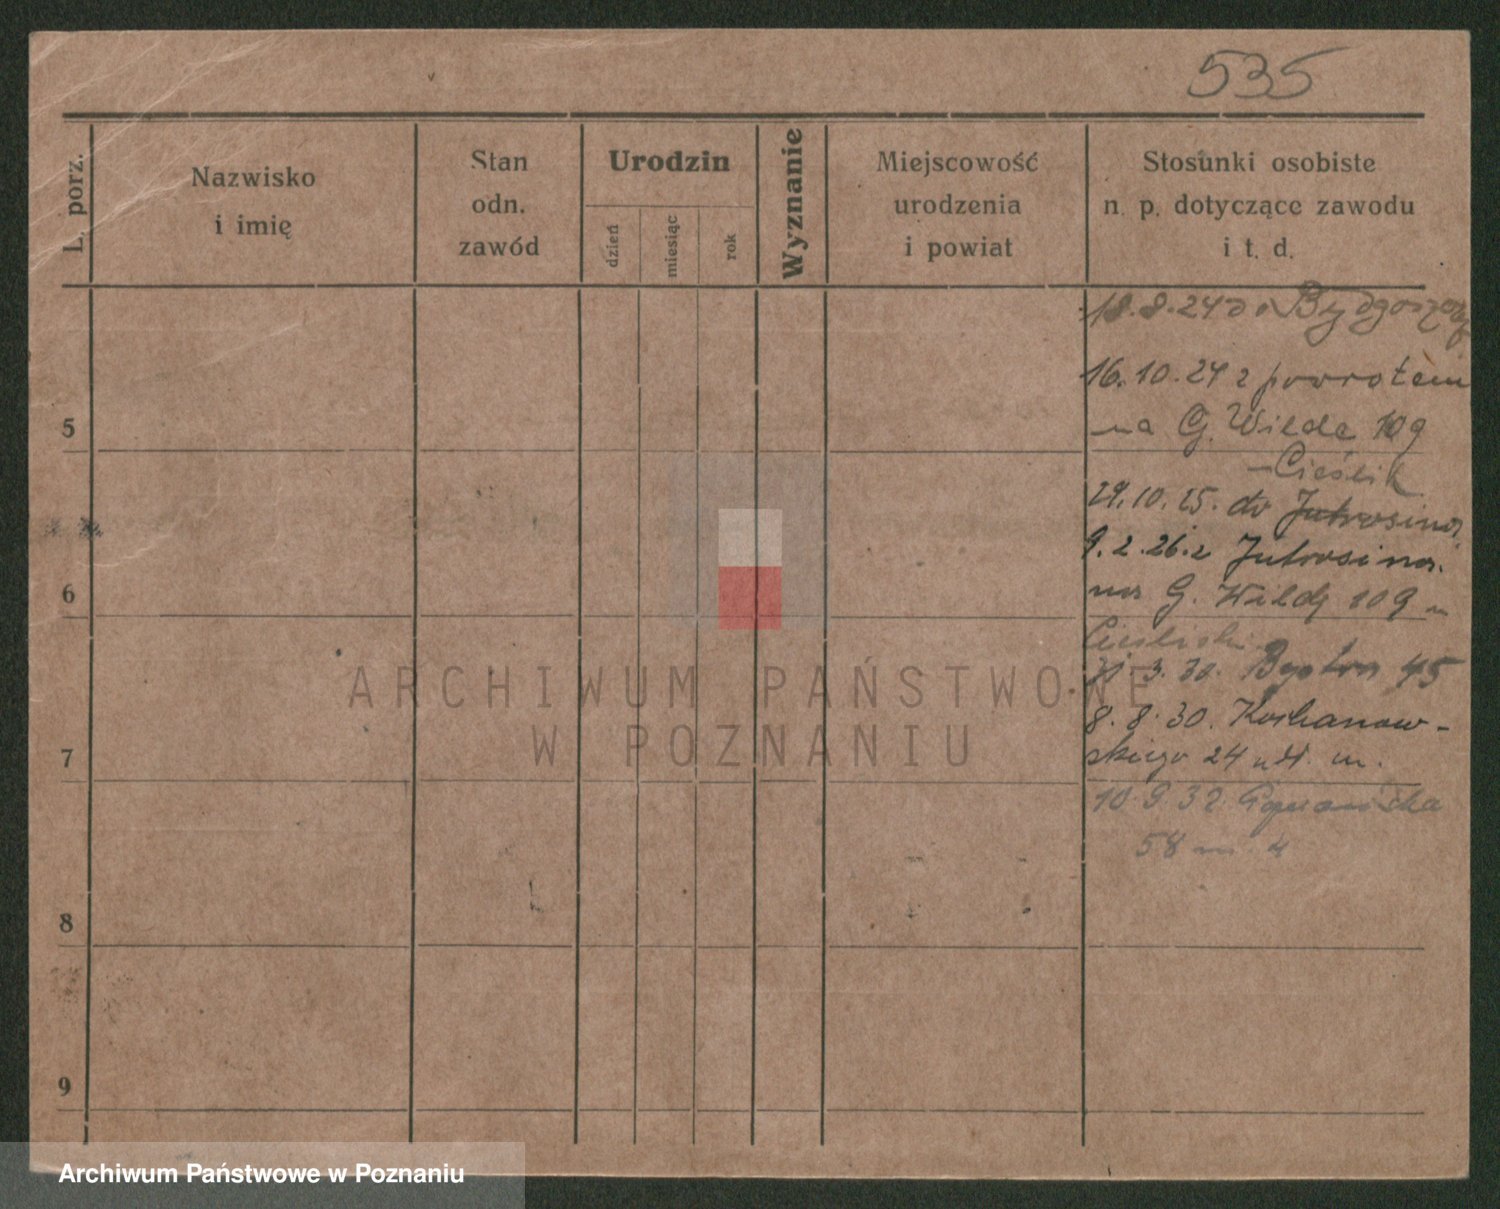 535
L. porz.
Nazwisko
i imię
Stan
odn.
zawód
Urodzin
dzień
miesiąc
rok
Wyznanie
Miejscowość
urodzenia
i powiat
Stosunki osobiste
n. p. dotyczące zawodu
i t. d.
18.8.24 do Bydgoszczy
16.10.24 z powrotem
5
na G. Wilda 109
- Cieślik
29.10.25. do Jutrosina
9.2.26. z Jutrosina
6
na G. Wildę 109 u
3. 30. 45
8. 8. 30. Kochanow-
7
skiego 24 m.
10 9 32
58 m. 4
8
9
ARCHIWUM PAŃSTWOWE
W POZNANIU
Archiwum Państwowe w Poznaniu